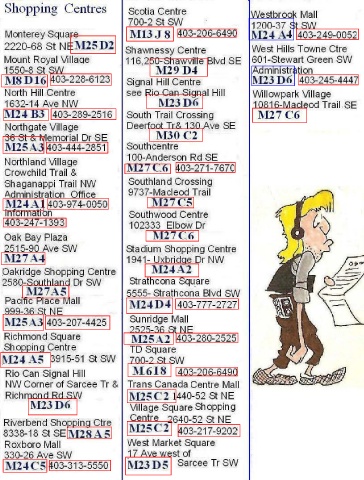 Shopping Centres
Monterey Square
2220-68 St NE M25 D2
Mount Royal Village
1550-8 St SW
M8 D16 403-228-6123
North Hill Centre
1632-14 Ave NW
M24 B3 403-289-2516
Northgate Village
36 St & Memorial Dr SE
M25 A3 403-444-2851
Northland Village
Crowchild Trail &
Shaganappi Trail NW
Administration Office
M24 A1 403-974-0050
Information
403-247-1393
Oak Bay Plaza
2515-90 Ave SW
M27 A4
Oakridge Shopping Centre
2580-Southland Dr SW
M27 A5
Pacific Place Mall
999-36 St NE
M25 A3 403-207-4425
Richmond Square
Shopping Centre
M24 A5 3915-51 St SW
Rio Can Signal Hill
NW Corner of Sarcee Tr &
Richmond Rd SW
M23 D6
Riverbend Shopping Ctre
8338-18 St SE M28 A5
Roxboro Mall
330-26 Ave SW
M24 C5 403-313-5550
Scotia Centre
700-2 St SW
M13 J 8 403-206-6490
Shawnessy Centre
116,250-Shawville Blvd SE
M29 D4
Signal Hill Centre
see Rio Can Signal Hill
M23 D6
South Trail Crossing
Deerfoot Tr& 130 Ave SE
M30 C2
Southcentre
100-Anderson Rd SE
M27 C6 403-271-7670
Southland Crossing
9737-Macleod Trail
M27 C5
Southwood Centre
102333 Elbow Dr
M27 C6
Stadium Shopping Centre
1941- Uxbridge Dr NW
M24 A2
Strathcona Square
5555- Strathcona Blvd SW
M24 D4 403-777-2727
Sunridge Mall
2525-36 St NE
M25 A2 403-280-2525
TD Square
700-2 St SW
M 6 18 403-206-6490
Trans Canada Centre Mall
M25 C2 1440-52 St NE
Village Square Shopping
Centre 2640-52 St NE
M25 C2 403-217-9202
West Market Square
17 Ave west of
M23 D5 Sarcee Tr SW
Westbrook Mall
1200-37 St SW
M24 A4 403-249-0052
West Hills Towne Ctre
601-Stewart Green SW
Administration
M23 D6 403-245-4447
Willowpark Village
10816-Macleod Trail SE
M27 C6